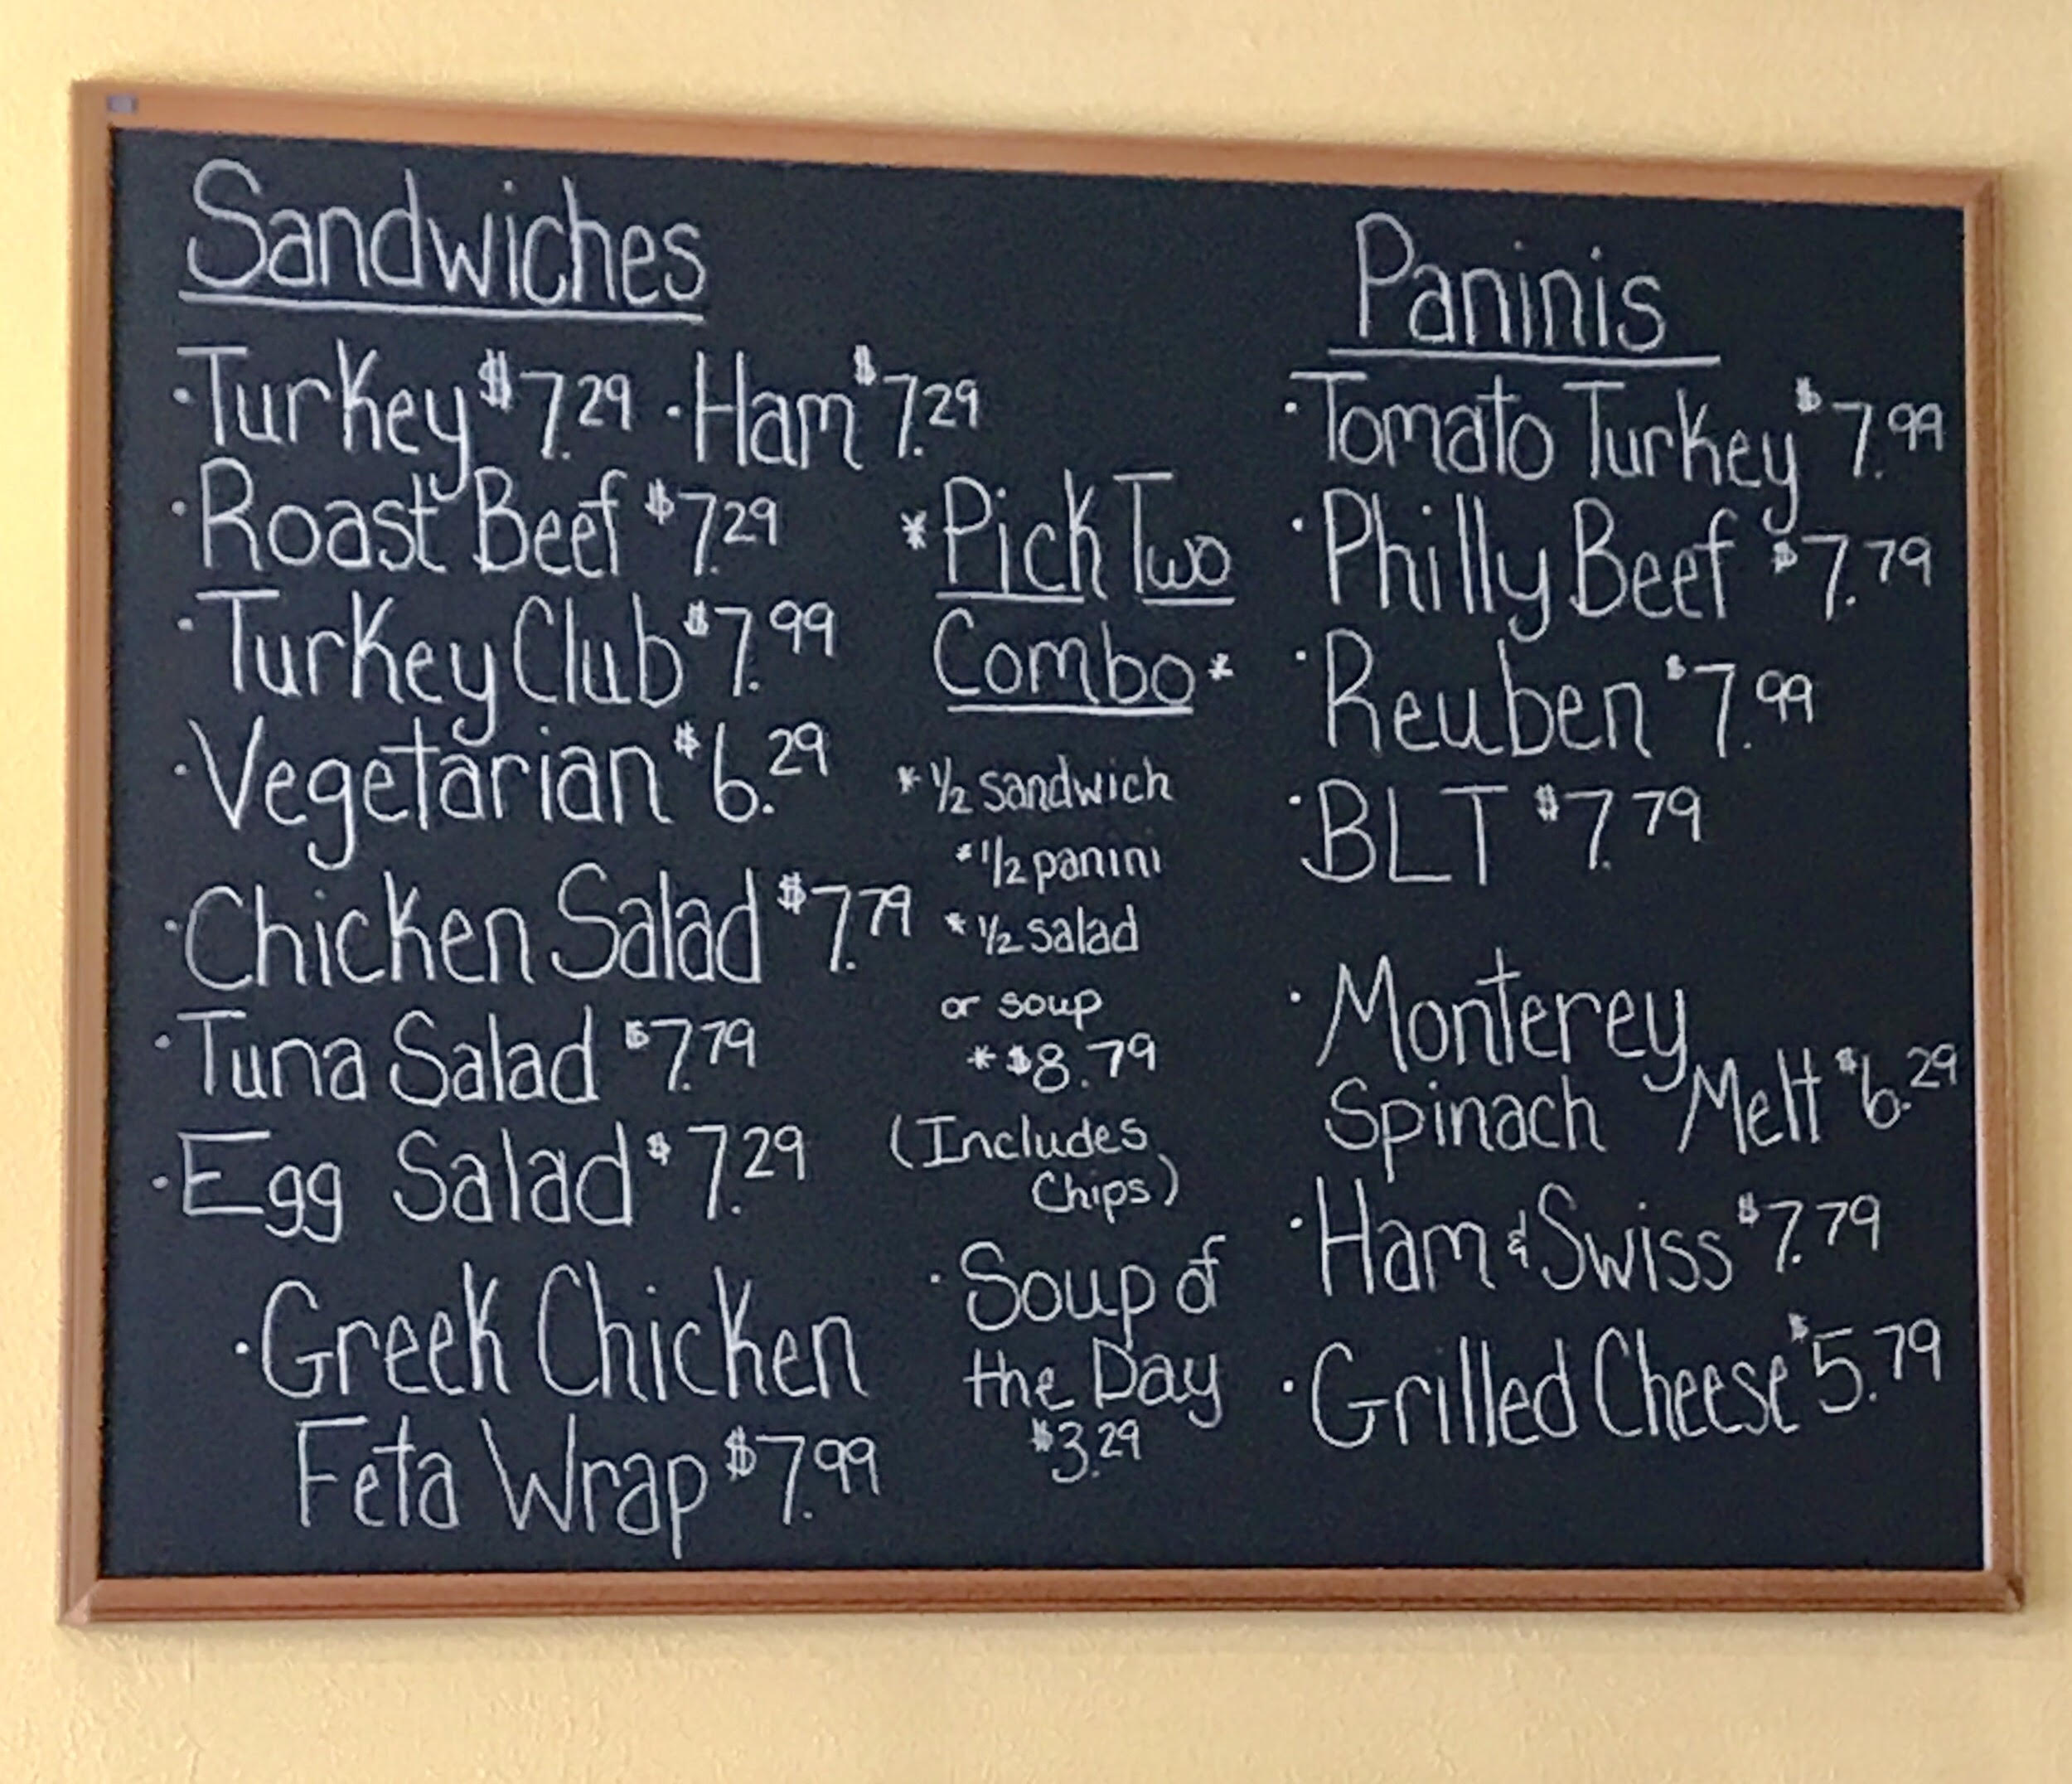 Sandwiches
·Turkey $7.29 ·Ham $7.29
·Roast Beef $7.29
·Turkey Club $7.99
·Vegetarian $6.29
·Chicken Salad $7.79
·Tuna Salad $7.79
·Egg Salad $7.29
·Greek Chicken
Feta Wrap $7.99
*Pick Two
Combo*
*1/2 sandwich
*1/2 panini
*1/2 salad
or soup
*$8.79
(Includes
Chips)
·Soup of
the Day
$3.29
Paninis
·Tomato Turkey $7.99
·Philly Beef $7.79
·Reuben $7.99
·BLT $7.79
·Monterey
Spinach Melt $6.29
·Ham & Swiss $7.79
·Grilled Cheese $5.79